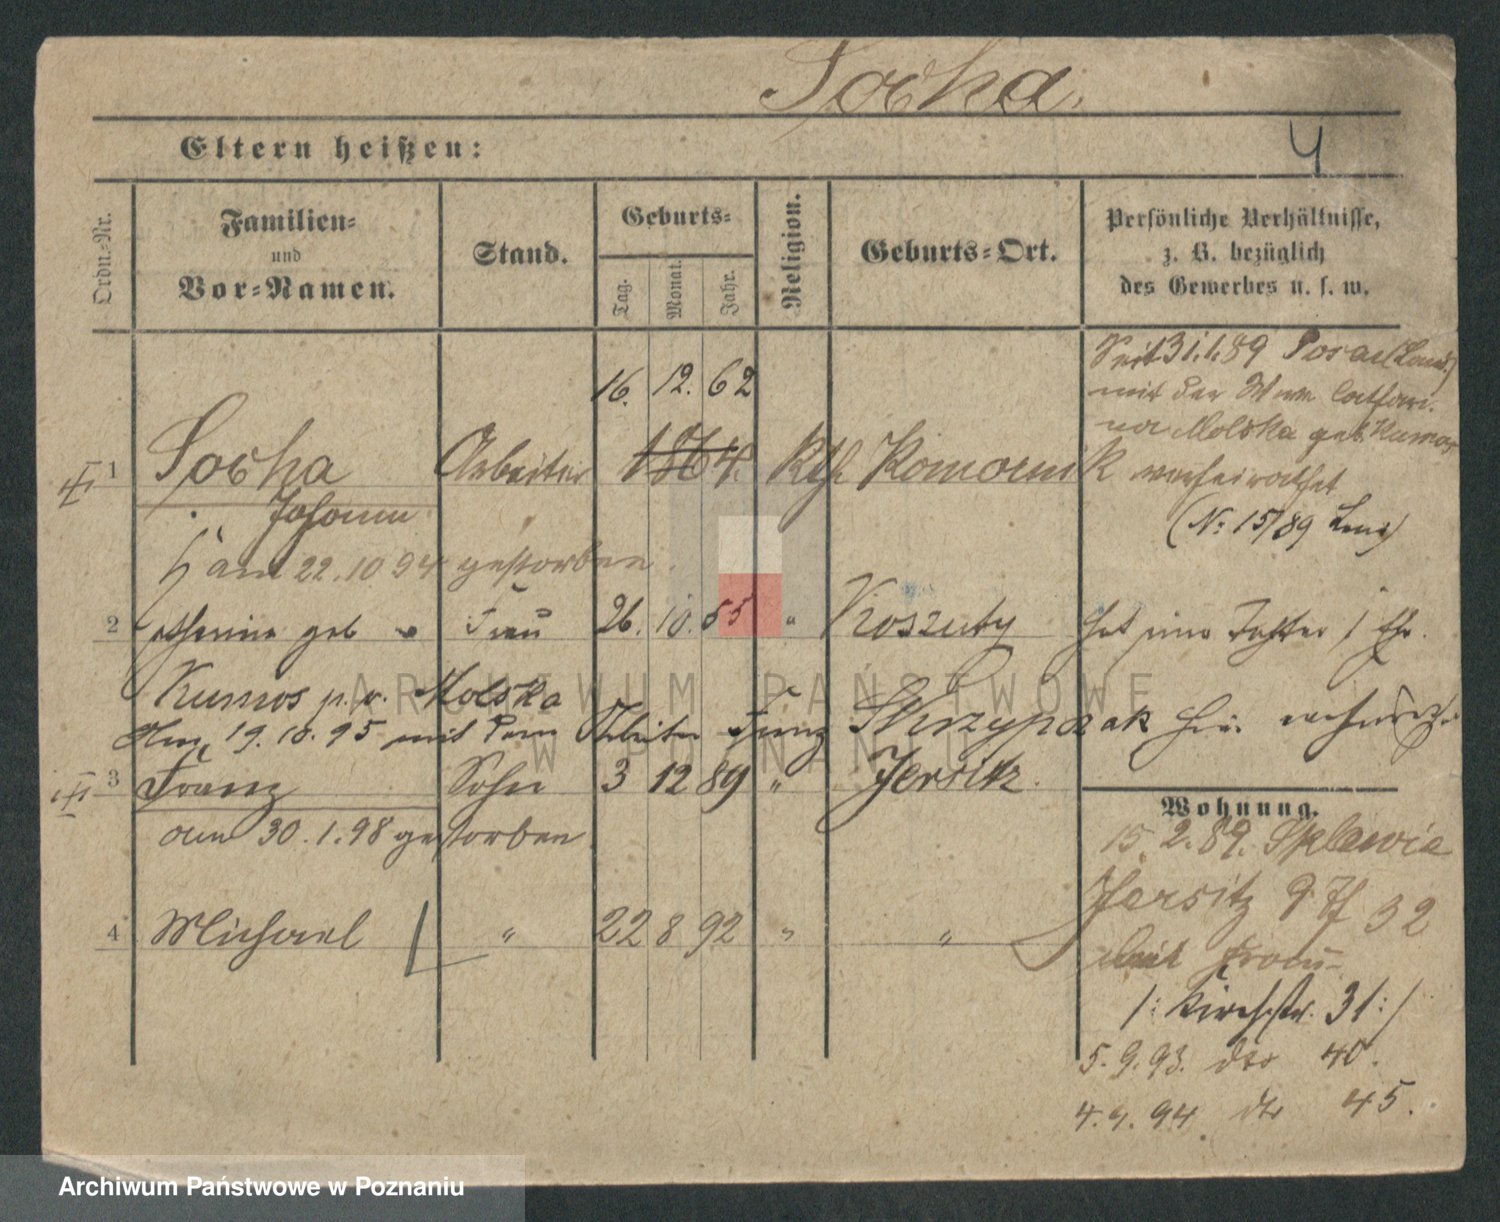 Socha
Eltern heißen:
4
Ordn.-Nr.
Familien-
und
Vor-Namen.
Stand.
Geburts-
Tag.
Monat.
Jahr.
Religion.
Geburts-Ort.
Persönliche Verhältnisse,
z. B. bezüglich
des Gewerbes u. s. w.
Seit 31.1.89 Posen
mit der Wwe Cathari-
na Molska geb. Kumos
verheirathet
(No 15/89)
16. 12. 62
1 Socha Arbeiter 1864. Kth Komornik
Johann
am 22.10 94 gestorben.
2 geb Frau 26. 10. 55 " Koszuty hat eine Tochter 1. Ehe.
Kumos p. v. Molska
19. 10. 95 mit dem Arbeiter Franz Skrzypczak
3 Franz Sohn 3 12 89 " Jersitz.
am 30.1.98 gestorben
4 Michael " 22 8 92 " "
Wohnung.
15.2.89.
Jersitz 32
Frau
/: Kirchstr. 31 :/
5. 9. 93. dto 40.
4. 9. 94. dto 45.
ARCHIWUM PAŃSTWOWE
W POZNANIU
Archiwum Państwowe w Poznaniu